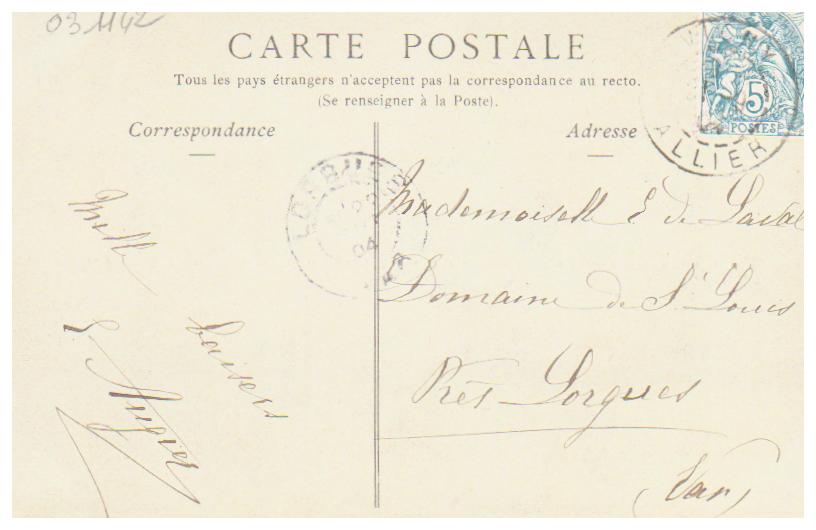 03 1142
CARTE POSTALE
Tous les pays étrangers n'acceptent pas la correspondance au recto.
(Se renseigner à la Poste).
Correspondance
Adresse
5
POSTES
ALLIER
LORGUES
04
VAR
Mille
baisers
E Augier
Mademoiselle E de Laval
Domaine de St Louis
Près Lorgues
(Var)